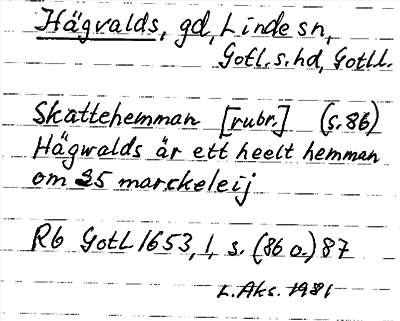 Hägvalds, gd, Linde sn,
Gotl. s. hd, Gotl l.
Skattehemman [rubr.] (s. 86)
Hägwalds är ett heelt hemman
om 25 marckeleij
Rb Gotl 1653, 1, s. (86 o.) 87
L. Aks. 1981